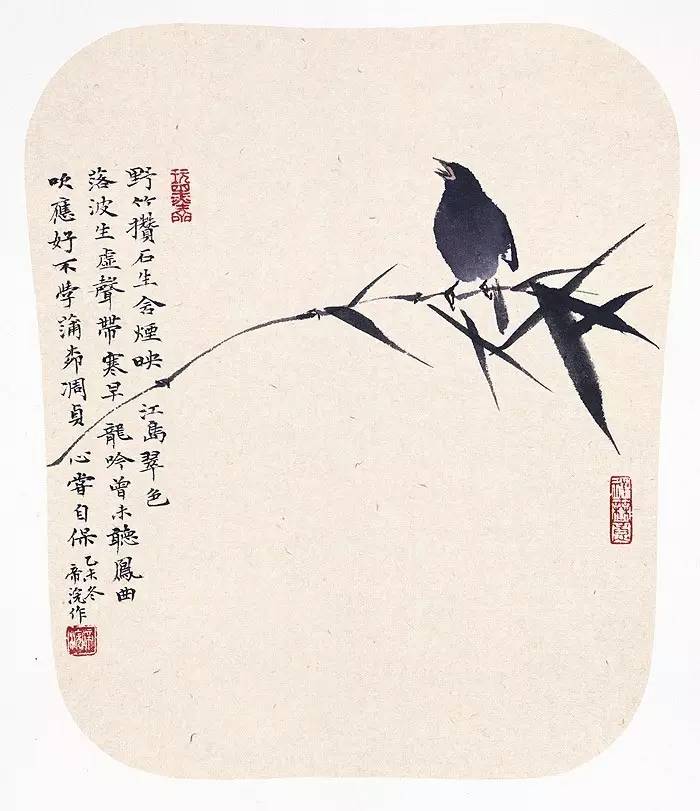 野竹攢石生含煙映江島翠色
落波生虛聲帶寒早龍吟曾未聽鳳曲
吹應好不學蒲柳凋貞心嘗自保
乙未冬
帝浣作